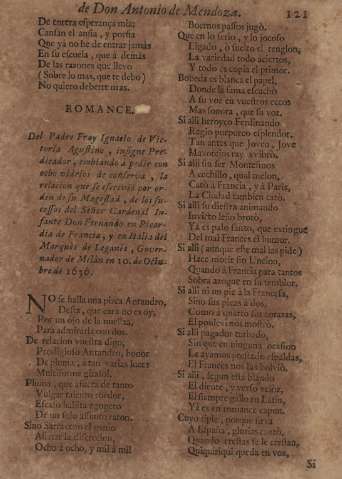 de Don Antonio de Mendoza. 121
De tercera esperança mia;
Cansan el ansia, y porfia
Que yà no he de entrar jamás
En su escuela, que à demàs
De las razones que llevo
(Sobre lo mas, que te debo)
No quiero deberte mas.
ROMANCE.
Del Padre Fray Ignacio de Vic-
toria Agustino, insigne Pre-
dicador, embiando à pedir con
ocho de conserva, la
relacion que se escrivió por or-
den de su Magestad, de los su-
cessos del Señor Cardenal In-
fante Don Fernando en Picar-
dia de Francia, y en Italia del
Marquès de Leganès, Gover-
nador de Milàn en 20. de Octu-
bre de 1636.
NO se halla una pieça Antandro,
Desta, que cara no es oy,
Por un ojo de la
Para admitirla con dos.
De relacion vuestra digo,
Prodigioso Antandro, honor
De pluma, à tan varias luces
Multiforme girasol.
Pluma, que afecta de tanto
Vulgar talento
De un solo assumpto
Sino Sarra con el genio
la discrecion,
Ocho à ocho, y mil à mil
Buenos passos jugò.
Que en lo serio, y lo jocoso
Ligado, ò suelto el renglon,
La variedad todo aciertos,
Y todo es copia el primor.
Bobeda es blanca el papel,
Donde la fama escuchò
A su voz en vuestros ecos
Mas sonora, que su voz.
Si alli heroyco Ferdinando
Regio purpureo esplendor,
Tan antes que Jove, Jove
Mayores rayos vibrò.
Si alli su ser Montesinos
A cuchillo, qual melon,
Catò à Francia, y à Paris,
La Ciudad tambien catò.
Si alli su diestra animando
Invicto leño brotò,
Yà es palo santo, que extingue
Del mal Francès el humor.
Si alli (aunque esse mal las pide)
Hace morir sin Uncion,
Quando à Francia para tantos
Sobra azogue en su temblor.
Si alli ni un pie à la Francesa,
Sino sus pieças à dos,
Como à quarto sus coraças,
El mostrò.
Si alli jugador turbado,
Sin que en ninguna ocasion
Le ayamos espaldas,
El Francès nos las bolviò.
Si alli, segun està blando
El diente, y verso veloz,
El siempre gallo en Latin,
Yà es en romance capon.
Cuyo tiple, porque sirva
A España, glorias cantò,
Quando crestas se le crestan,
Quiquiriqui queda en vos,
Si